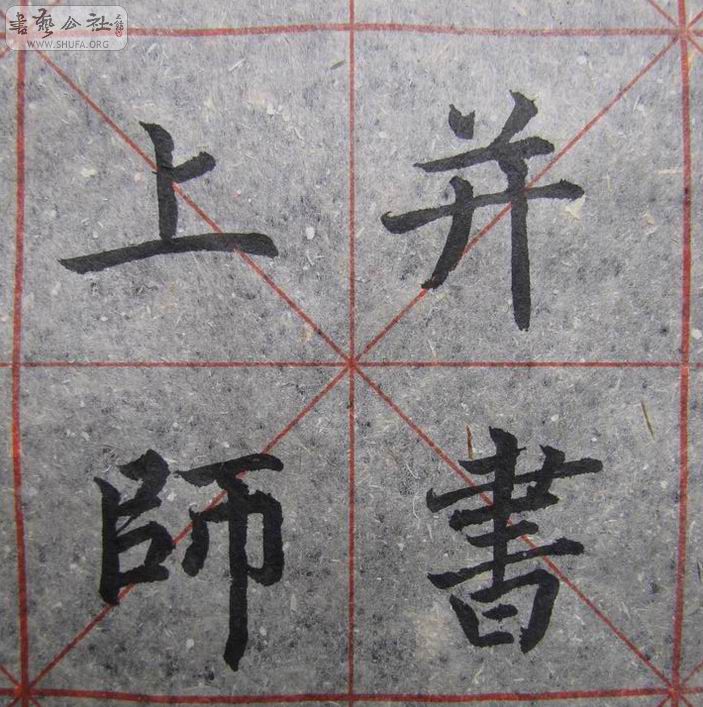 并書
上師
書藝公社
WWW.SHUFA.ORG